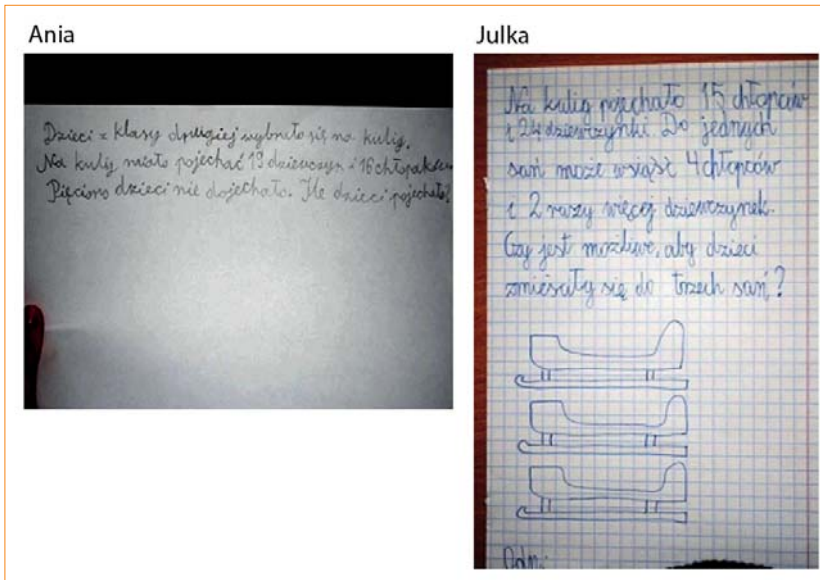 Ania
Dzieci z klasy drugiej wybrało się na kulig.
Na kulig miało pojechać 19 dziewczyn i 16 chłopaków
Pięcioro dzieci nie dojechało. Ile dzieci pojechało?
Julka
Na kulig pojechało 15 chłopców
i 24 dziewczynki Do jednych
sań może wsiąść 4 chłopców
i 2 razy więcej dziewczynek.
Czy jest możliwe, aby dzieci
zmieściły się do trzech sań?
Odp.: